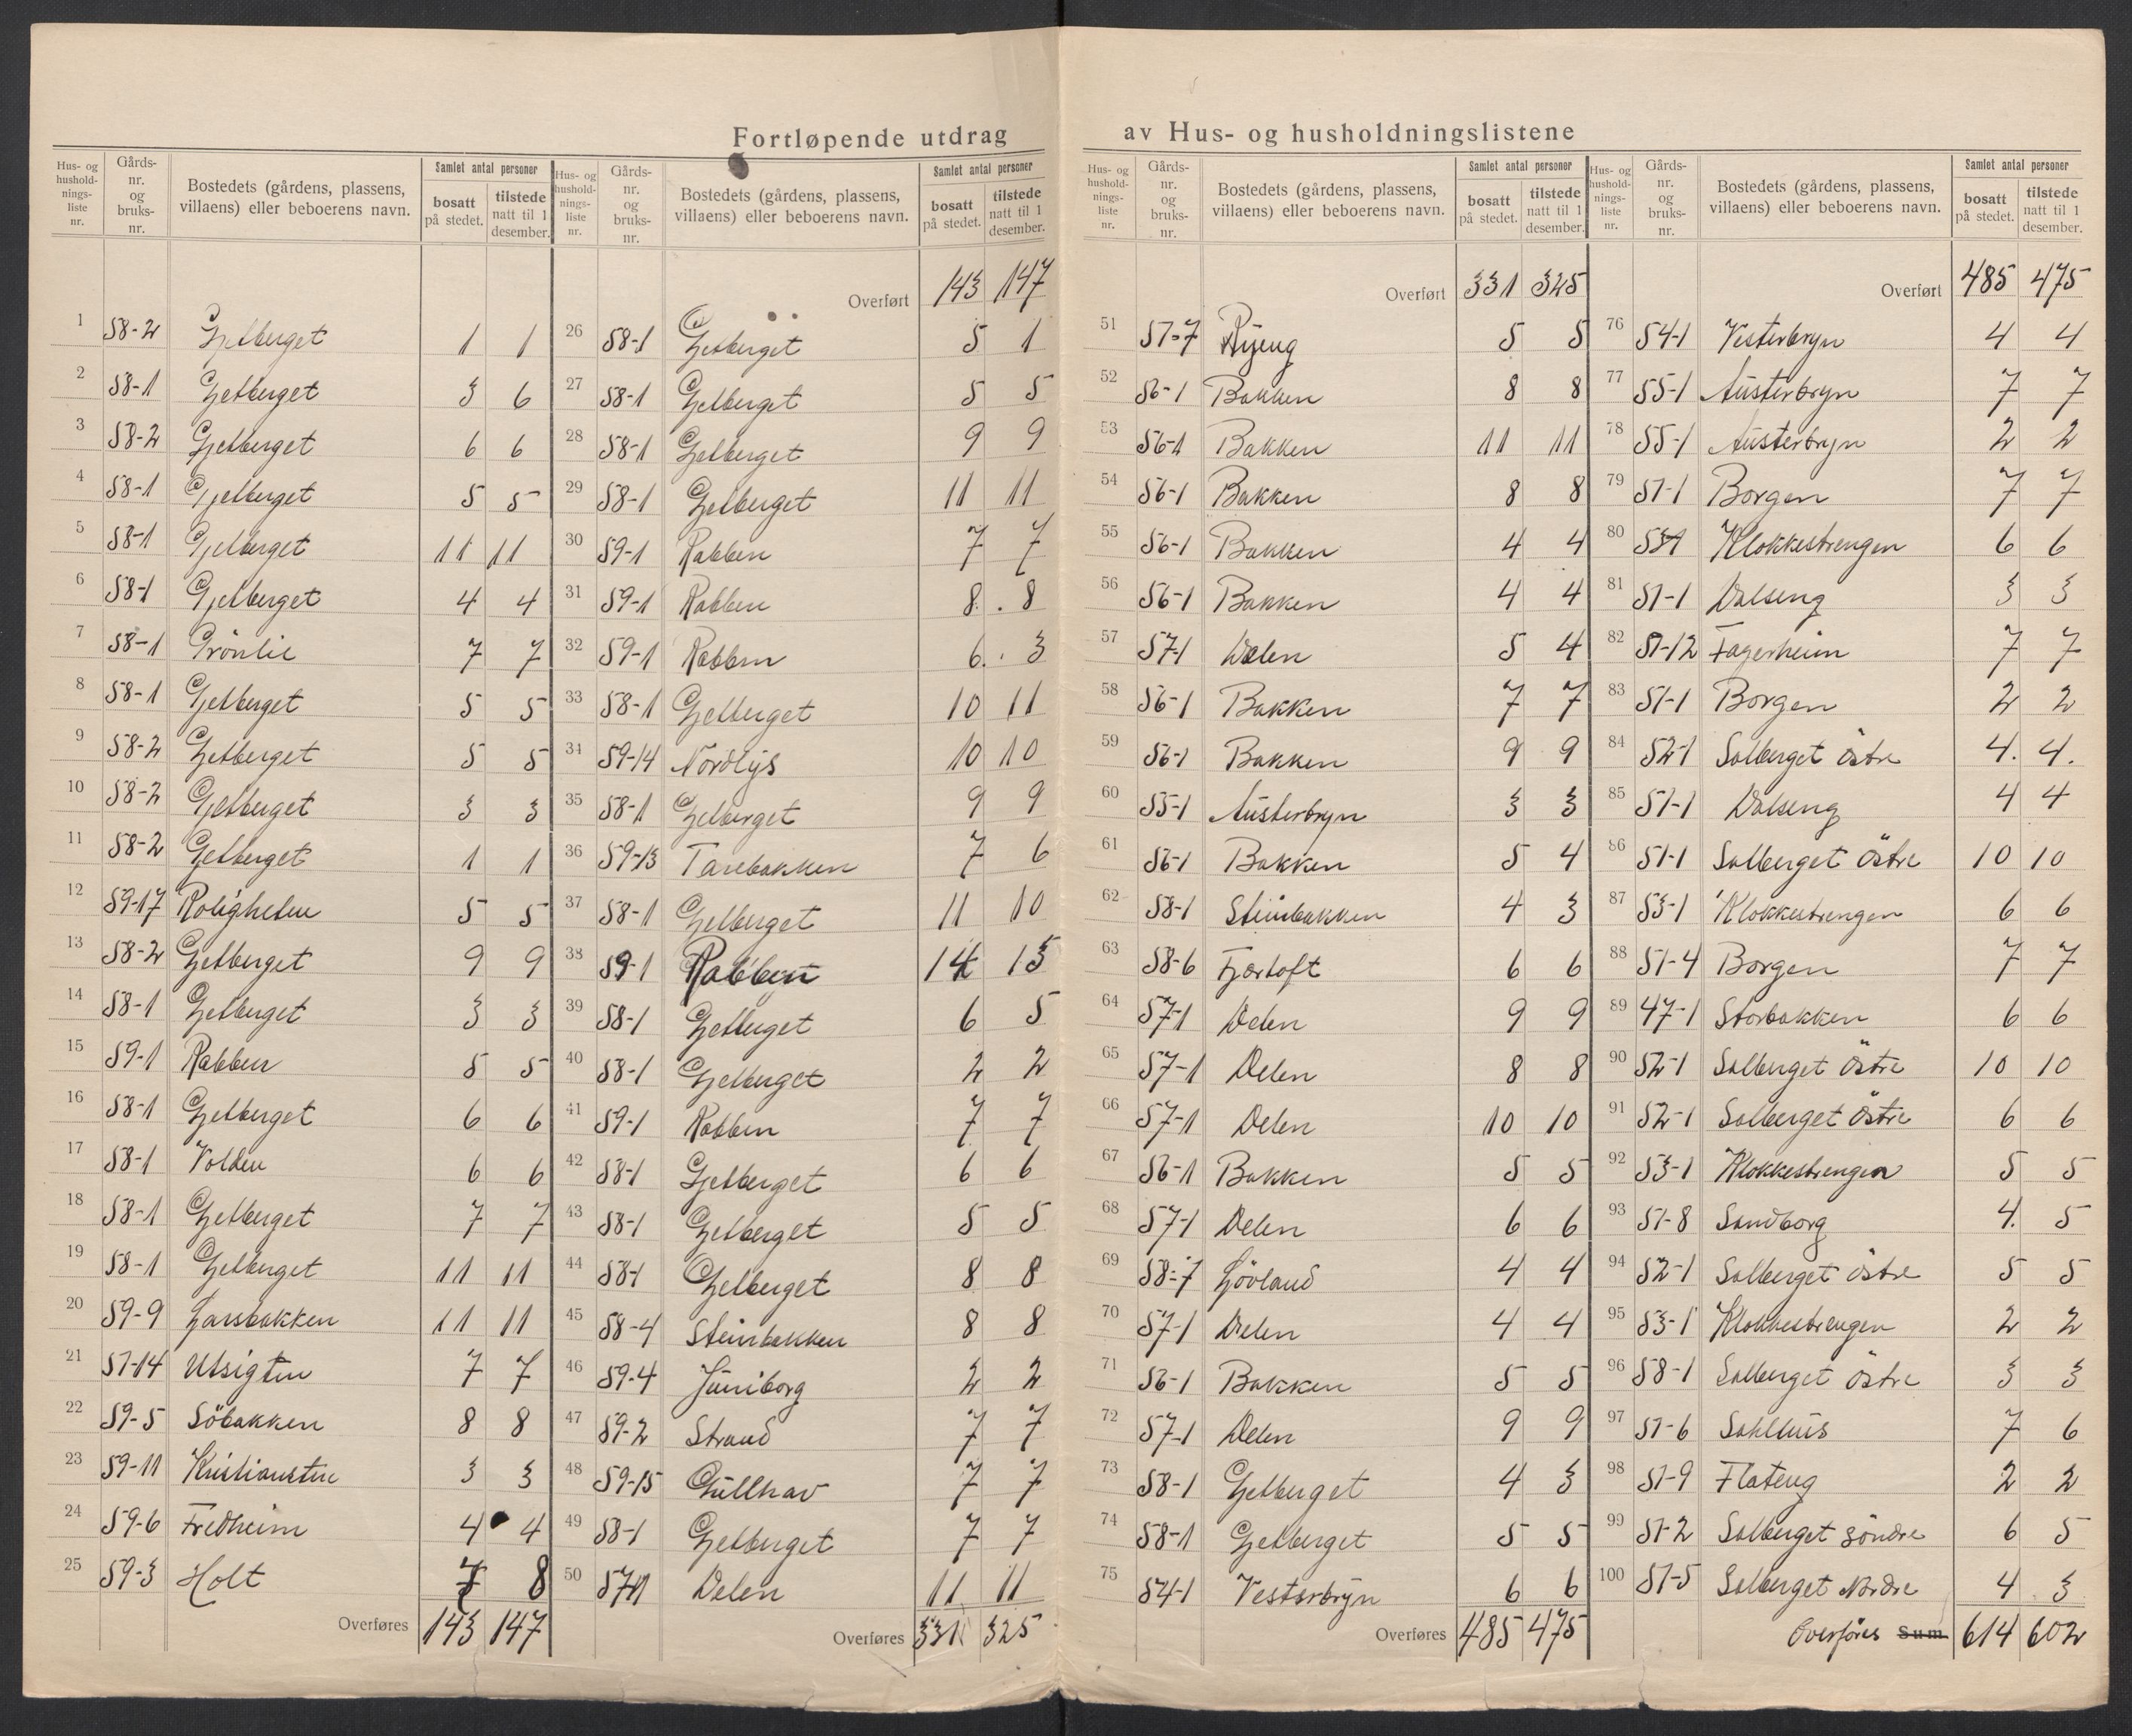 Fortløpende utdrag av Hus- og husholdningslistene
Hus- og husholdnings-liste nr. | Gårds-nr. og bruks-nr. | Bostedets (gårdens, plassens, villaens) eller beboerens navn. | Samlet antal personer | bosatt på stedet. | tilstede natt til 1 desember.
1 58-2 Gjetberget 1 1
2 58-1 Gjetberget 3 6
3 58-2 Gjetberget 6 6
4 58-1 Gjetberget 5 5
5 58-1 Gjetberget 11 11
6 58-1 Gjetberget 4 4
7 58-1 Grönlie 7 7
8 58-1 Gjetberget 5 5
9 58-2 Gjetberget 5 5
10 58-2 Gjetberget 3 3
11 58-2 Gjetberget 1 1
12 59-17 Roligheten 5 5
13 58-2 Gjetberget 9 9
14 58-1 Gjetberget 3 3
15 59-1 Rabben 5 5
16 58-1 Gjetberget 6 6
17 58-1 Volden 6 6
18 58-1 Gjetberget 7 7
19 58-1 Gjetberget 11 11
20 59-9 Larsbakken 11 11
21 57-14 Utsigten 7 7
22 59-5 Söbakken 8 8
23 59-11 Kristiansten 3 3
24 59-6 Fredheim 4 4
25 59-3 Holt 7 8
Overføres 143 147
Hus- og husholdnings-liste nr. | Gårds-nr. og bruks-nr. | Bostedets (gårdens, plassens, villaens) eller beboerens navn. | Samlet antal personer | bosatt på stedet. | tilstede natt til 1 desember.
Overført 143 147
26 58-1 Gjetberget 5 1
27 58-1 Gjetberget 5 5
28 58-1 Gjetberget 9 9
29 58-1 Gjetberget 11 11
30 59-1 Rabben 7 7
31 59-1 Rabben 8 8
32 59-1 Rabben 6 3
33 58-1 Gjetberget 10 11
34 59-14 Nordlys 10 10
35 58-1 Gjetberget 9 9
36 59-13 Tarebakken 7 6
37 58-1 Gjetberget 11 10
38 59-1 Rabben 14 13
39 58-1 Gjetberget 6 5
40 58-1 Gjetberget 2 2
41 59-1 Rabben 7 7
42 58-1 Gjetberget 6 6
43 58-1 Gjetberget 5 5
44 58-1 Gjetberget 8 8
45 58-4 Steinbakken 8 8
46 59-4 Juniborg 2 2
47 59-2 Strand 7 7
48 59-15 Gullhav 7 7
49 58-1 Gjetberget 7 7
50 57-1 Delen 11 11
Overføres 331 325
Hus- og husholdnings-liste nr. | Gårds-nr. og bruks-nr. | Bostedets (gårdens, plassens, villaens) eller beboerens navn. | Samlet antal personer | bosatt på stedet. | tilstede natt til 1 desember.
Overført 331 325
51 57-7 Ryeng 5 5
52 56-1 Bakken 8 8
53 56-1 Bakken 11 11
54 56-1 Bakken 8 8
55 56-1 Bakken 4 4
56 56-1 Bakken 4 4
57 57-1 Delen 5 4
58 56-1 Bakken 7 7
59 56-1 Bakken 9 9
60 55-1 Austerbryn 3 3
61 56-1 Bakken 5 4
62 58-1 Steinbakken 4 3
63 58-6 Fjørtoft 6 6
64 57-1 Delen 9 9
65 57-1 Delen 8 8
66 57-1 Delen 10 10
67 56-1 Bakken 5 5
68 57-1 Delen 6 6
69 58-7 Lövland 4 4
70 57-1 Delen 4 4
71 56-1 Bakken 5 5
72 57-1 Delen 9 9
73 58-1 Gjetberget 4 3
74 58-1 Gjetberget 5 5
75 54-1 Vesterbryn 6 6
Overføres 485 475
Hus- og husholdnings-liste nr. | Gårds-nr. og bruks-nr. | Bostedets (gårdens, plassens, villaens) eller beboerens navn. | Samlet antal personer | bosatt på stedet. | tilstede natt til 1 desember.
Overført 485 475
76 54-1 Vesterbryn 4 4
77 55-1 Austerbryn 7 7
78 55-1 Austerbryn 2 2
79 51-1 Borgen 7 7
80 53-1 Klokkestrengen 6 6
81 51-1 Dalseng 3 3
82 51-12 Fagerheim 7 7
83 51-1 Borgen 2 2
84 52-1 Solberget östre 4. 4.
85 51-1 Dalseng 4 4
86 51-1 Solberget östre 10 10
87 53-1 Klokkestrengen 6 6
88 51-4 Borgen 7 7
89 47-1 Storbakken 6 6
90 52-1 Solberget östre 10 10
91 52-1 Solberget östre 6 6
92 53-1 Klokkestrengen 5 5
93 51-8 Sandborg 4. 5
94 52-1 Solberget östre 5 5
95 53-1 Klokkestrengen 2 2
96 58-1 Solberget östre 3 3
97 51-6 7 6
98 51-9 Flateng 2 2
99 51-2 Solberget söndre 6 5
100 51-5 Solberget Nordre 4 3
Overføres Sum 614 602